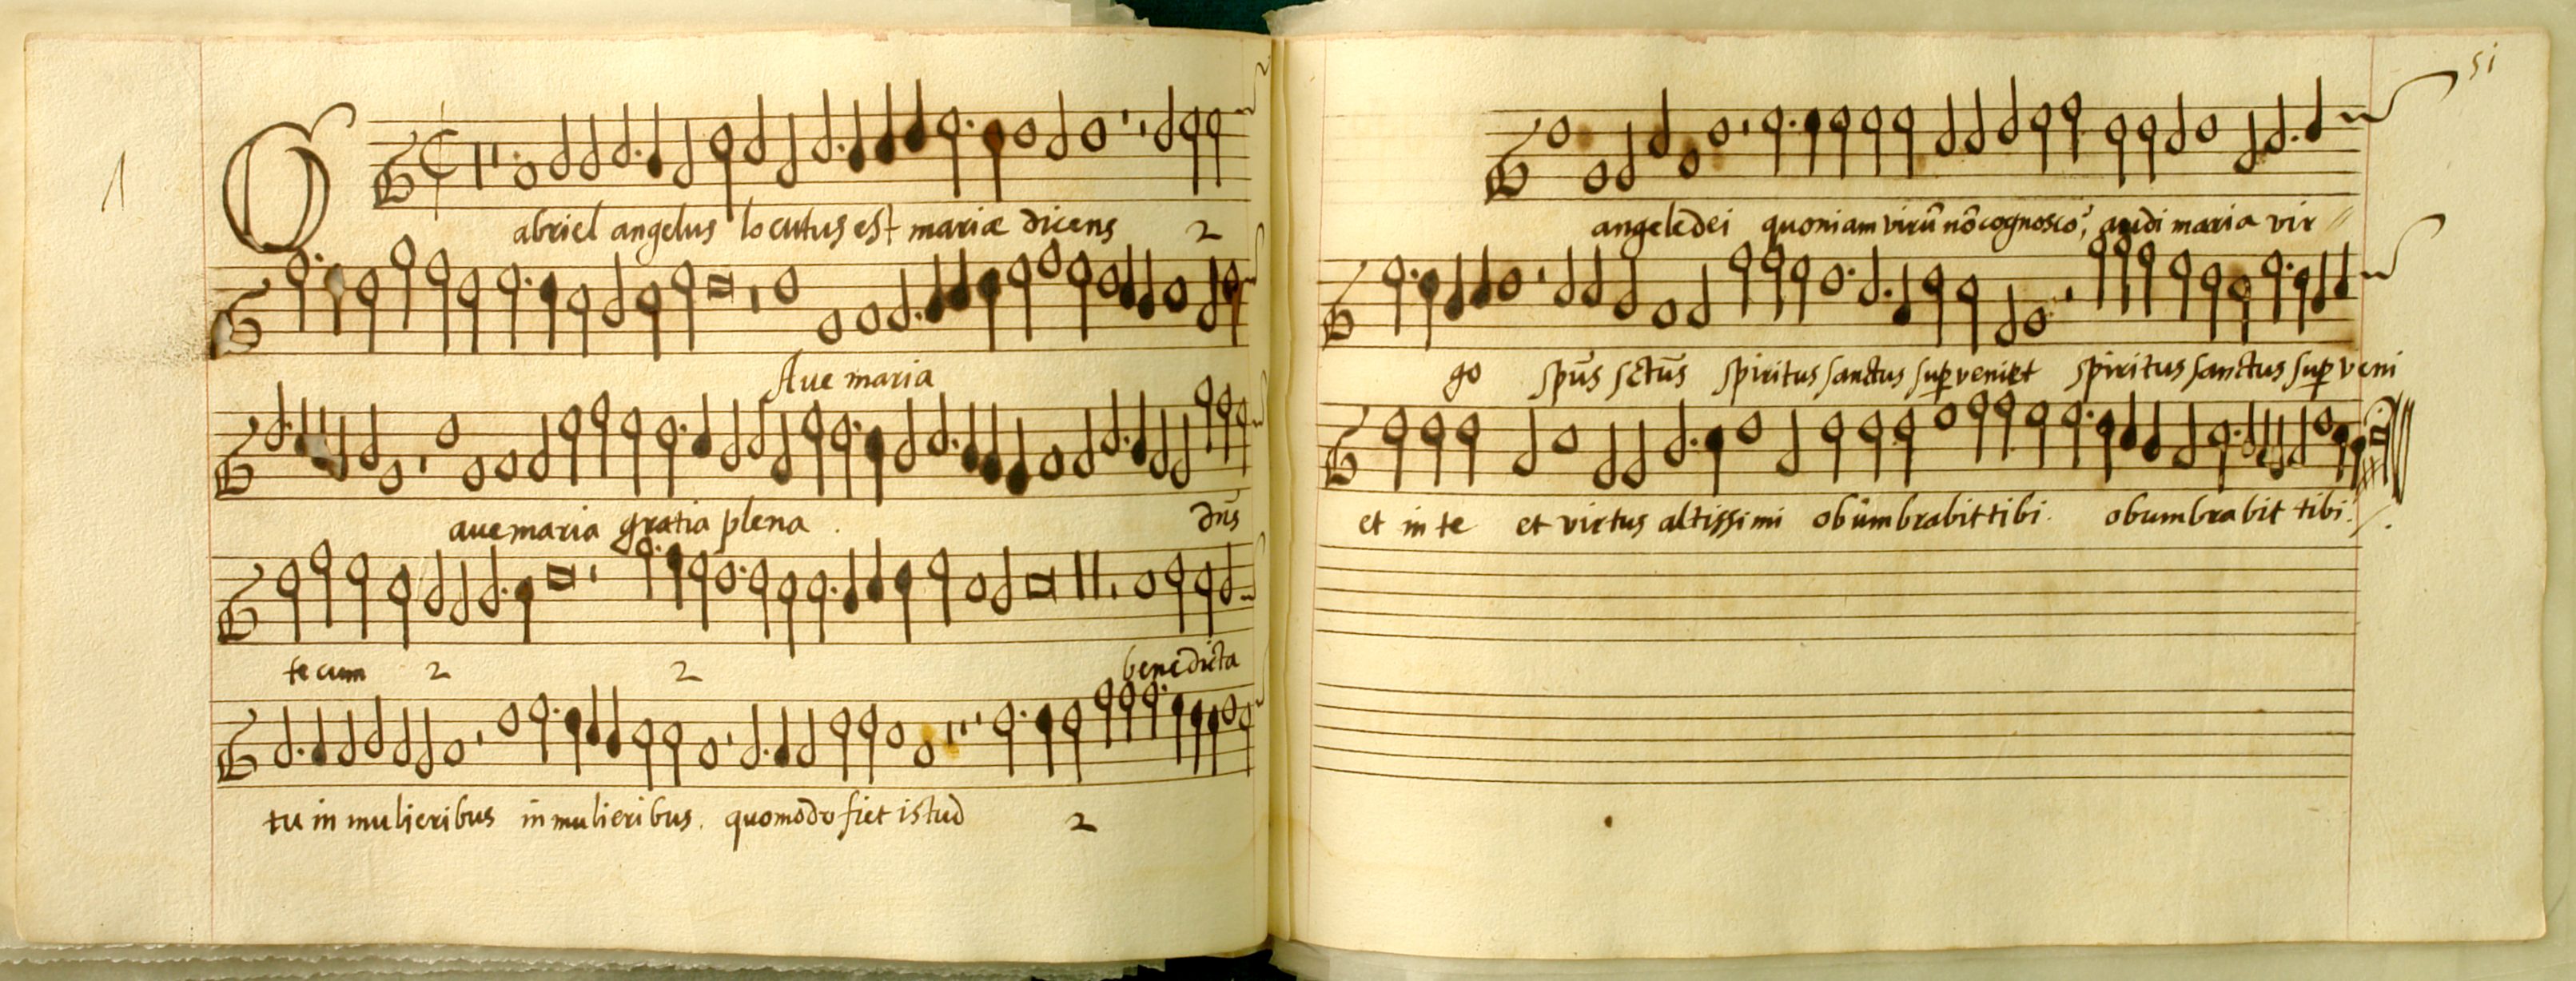 1
Gabriel angelus locutus est mariæ dicens 2
Ave maria
ave maria gratia plena . dñs
tecum 2 2 benedicta
tu in mulieribus in mulieribus . quomodo fiet istud 2
51
angele dei quoniam virũ nõ cognosco? audi maria vir
go spũs sctũs spiritus sanctus sup veniet spiritus sanctus sup veni
et in te et virtus altissimi obumbrabit tibi . obumbrabit tibi .